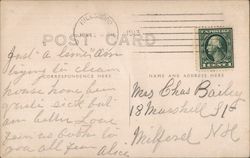 HILLSBORO
1913
POST CARD
CORRESPONDENCE HERE
NAME AND ADDRESS HERE
Just a line, Am
trying to clean
house have been
quite sick but
am better Love
from us both to
you all from
Alice
Mrs Chas Bailey
18 Marshall St
Milford N H